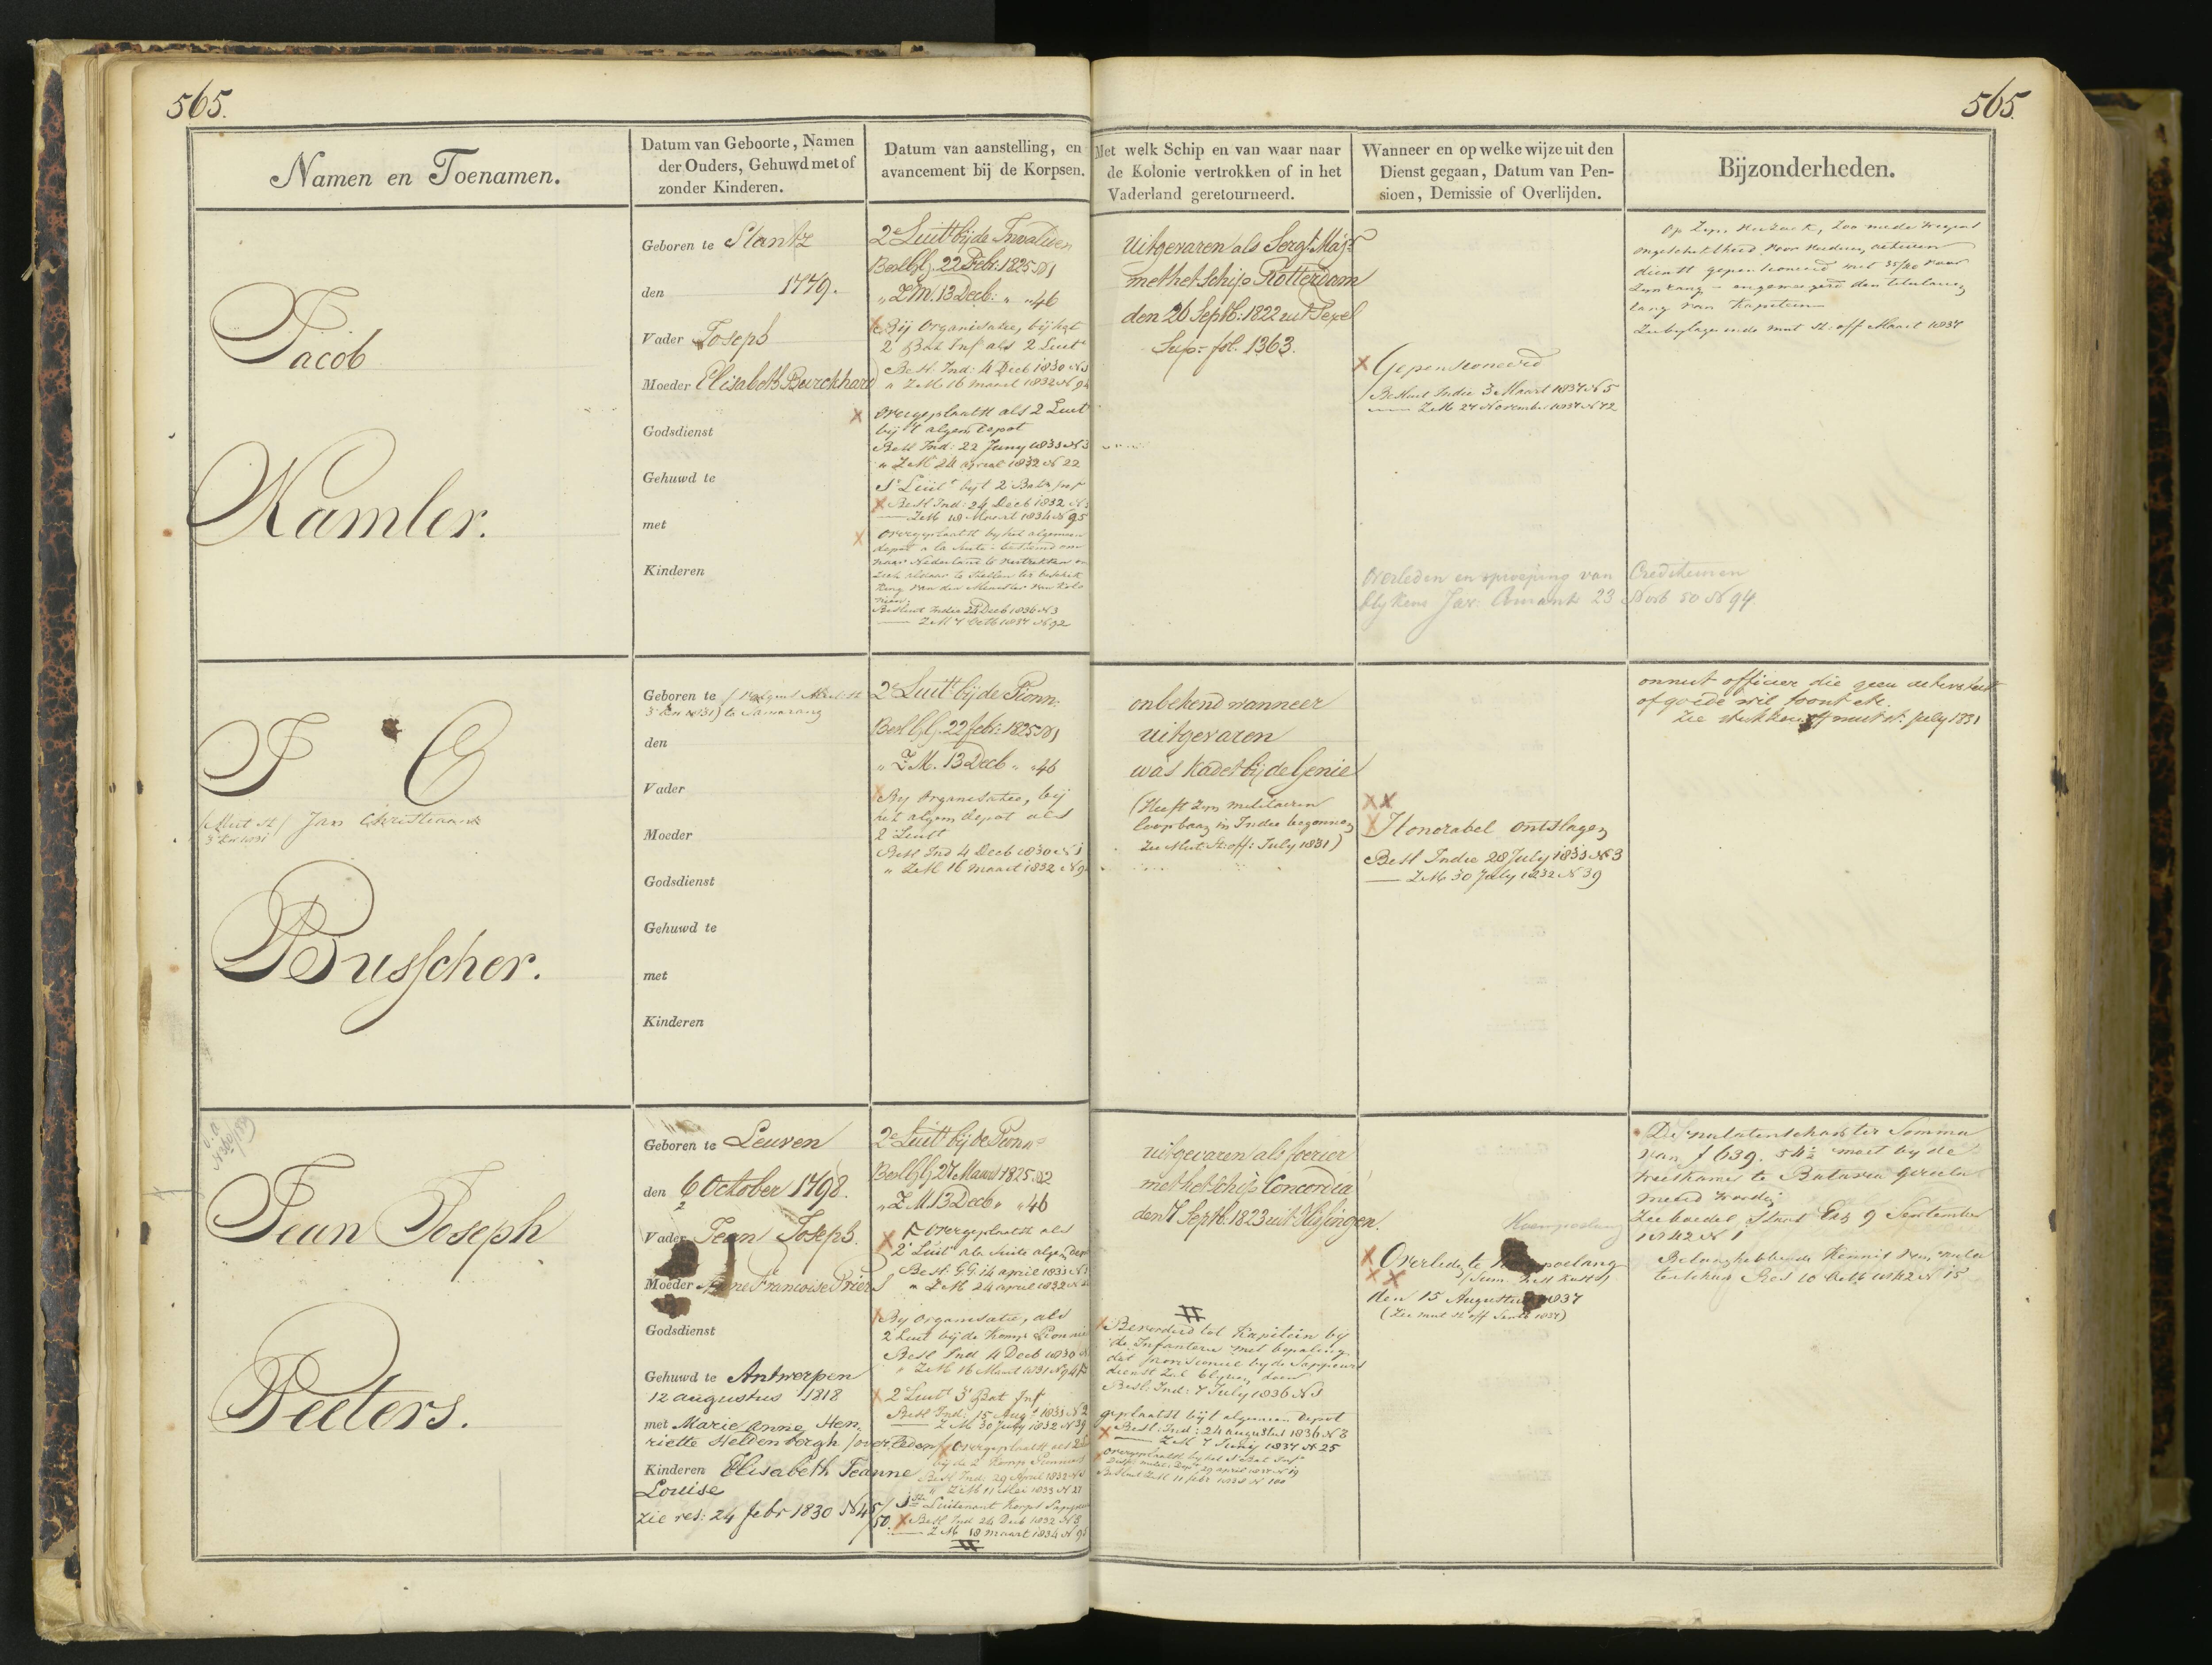 565.
565.
Namen en Toenamen.
Datum van Geboorte, Namen
der Ouders, Gehuwd met of
zonder Kinderen.
Datum van aanstelling, en
avancement bij de Korpsen.
Met welk Schip en van waar naar
de Kolonie vertrokken of in het
Vaderland geretourneerd.
Wanneer en op welke wijze uit den
Dienst gegaan, Datum van Pen-
sioen, Demissie of Overlijden.
Bijzonderheden.
Jacob
Kamler.
Geboren te Plantz
den 1779.
Vader Joseph
Moeder Elisabeth Burckhard
Godsdienst
Gehuwd te
met
Kinderen
2e Luit bij de Invaliden
Besl 22 Feb: 1825 N1
" Z M. 13 Decb: " " 46
Bij Organisatie, bij het
2 Bat Inf als 2 Luit
Besl. Ind: 4 Decb 1830 N1
" Z M 16 maart 1832 N 94
overgeplaatst als 2 Luit
bij 't algem Depot
Besl Ind: 22 Juny 1831 N3
" Z M 24 april 1832 N 22
1e Luit bijt 2 Bat Inf
Besl Ind: 24 Decb 1832 N3
Z M 18 Maart 1834 N 95
overgeplaatst by het algemeen
depot a la Suite bestemd om
naar Nederland te vertrekken en
zich aldaar te stellen ter beschik
king van den Minister van Kolo
nien.
Besluit Indie 24 Decb 1836 N3
Z M 7 Octb 1837 N 92
Uitgevaren als Sergt Majr
met het Schip Rotterdam
den 26 Septb: 1822 uit Texel
Sup: fol. 1363.
Gepensioneerd
Besluit Indie 3 Maart 1837 N 5
Z M 27 November 1837 N 72
overleden en oproeping van Crediteuren
blykens Jav: Courant 23 Novb 50 N 94
Op Zyn Verzoek, zoo mede wegens
ongeschiktheid voor verderen activen
dienst gepensioneerd met 35/40 voor
zyn rang en den titulairen
rang van Kapitein
Zie bylage ende mut st: off Maart 1837
J C
(Mut st) Jan Christiaan
Busscher.
Geboren te (volgens Mut: st
3e kw 1831) te Samarang
den
Vader
Moeder
Godsdienst
Gehuwd te
met
Kinderen
2e Luit bij de Pionn:
Besl 22 febr: 1825 N1
" Z.M. 13 Decb " " 46
By Organisatie, bij
het algem depot als
2 Luit
Besl Ind 4 Decb 1830 N 1
" Z M 16 maart 1832 N 9
onbekend wanneer
uitgevaren
was Kadet bij de Genie
(Heeft Zyn militairen
loopbaan in Indie begonnen
Zie Mut: St: off: July 1831)
Honorabel ontslagen
Besl Indie 28 July 1831 N 3
Z M 30 July 1832 N 39
onnut officier die geen
of goede wil toont etc.
Zie stukken mut st: July 1831
Jean Joseph
Peeters.
Geboren te Leuven
den 6 October 1798.
Vader Jean Joseph.
Moeder Anne Francoise Priers
Godsdienst
Gehuwd te Antwerpen
12 augustus 1818
met Marie Anne Hen,
riette Heldenbergh / overleden /
Kinderen Elisabeth Jeanne
Louise
Zie res: 24 febr 1830 N 45/50.
2e Luit bij de Pionn
Besl 27 Maart 1825 N2
" Z M. 13 Decb " " 46
overgeplaatst als
2e Luit ala Suite algem depot
Besl: G.G. 14 april 1831 N 1
" Z M 24 april 1832 N 22
By Organisatie, als
2 Luit bij de Komp Pionniers
Besl Ind 4 Decb 1830 N
" Z M 16 Maart 1831 N 94
2 Luit 3e Bat Inf
Besl Ind: 15 Augt 1831 N 2
Z M 30 July 1832 N 39
overgeplaatst als 2 Luit
bij de 2 Komp Pionniers
Besl Ind: 29 April 1832 N
" Z M 11 Mei 1833 N 27
1ste Luitenant Korps Sappeurs
Besl Ind 24 Decb 1832 N 3
Z M 18 maart 1834 N 95
uitgevaren als foerier
met het schip Concordia
den 7 Septb. 1823 uit Vlissingen.
Bevorderd tot Kapitein by
de Infanterie met bepaling
dat provisioneel by de Sappeurs
dienst zal blyven doen
Besl: Ind: 7 July 1836 N 1
geplaatst bij't algemeen Depot
Besl: Ind: 24 augustus 1836 N 8
Z M 7 Juny 1837 N 25
overgeplaatst by het Bat Infie
29 april 1837 N 19
Besluit Z M 11 febr 1838 N 100
Overleden te
(Sum. West Kust)
den 15 Augustus 1837
(Zie mut st off Septb 1837)
De nalatenschap ter Somma
van f 639. 54½ moet by de
weeskamer te Batavia gerecla
meerd worden
Zie boedel Staat Exh 9 September
1842 N 1
Belanghebbende Kennis van nala
tenschap Res 10 Octb 1842 N 15